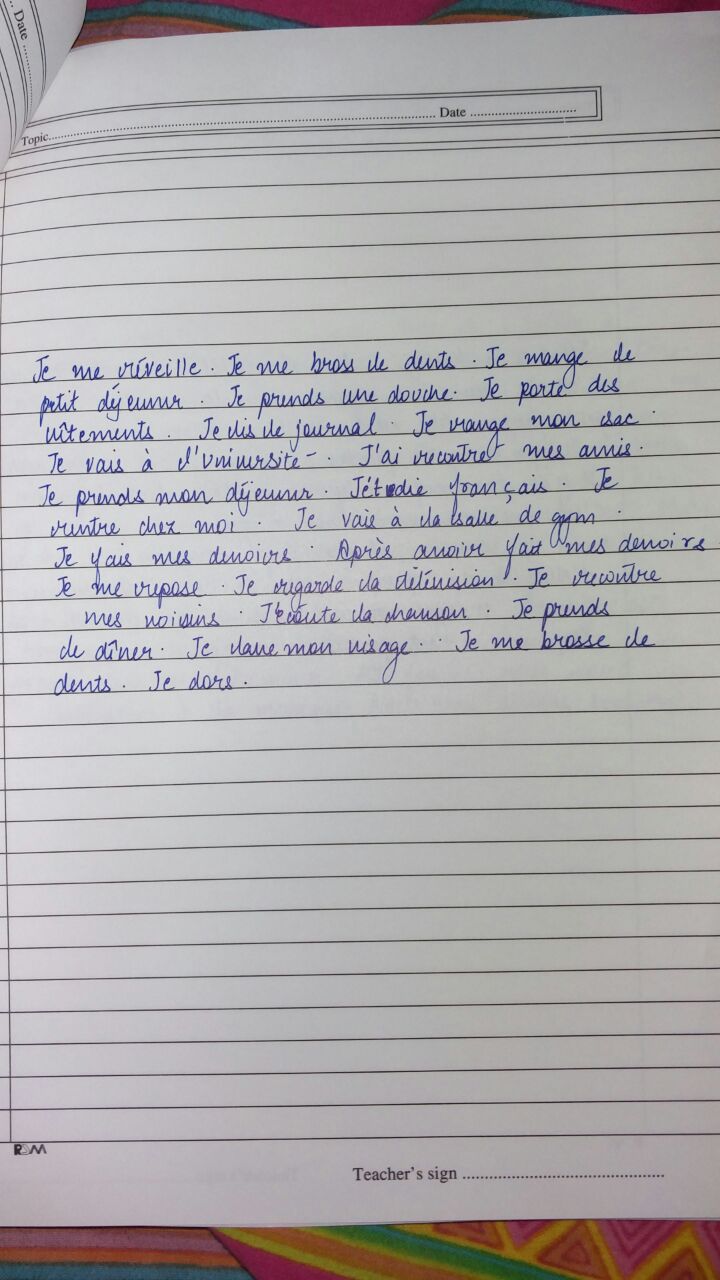 Date
Topic Date
Je me réveille. Je me bross de dents. Je mange de
petit déjeuner. Je prends une douche. Je porte des
vêtements. Je lis le journal. Je range mon sac.
Je vais à l'Université. J'ai recontrer mes amis.
Je prends mon déjeuner. J'étudie français. Je
rentre chez moi. Je vais à la salle de gym.
Je fais mes devoirs. Après avoir fait mes devoirs
Je me repose. Je regarde la télévision. Je recontre
mes voisins. J'écoute la chanson. Je prends
de dîner. Je lave mon visage. Je me brosse de
dents. Je dors.
Teacher's sign